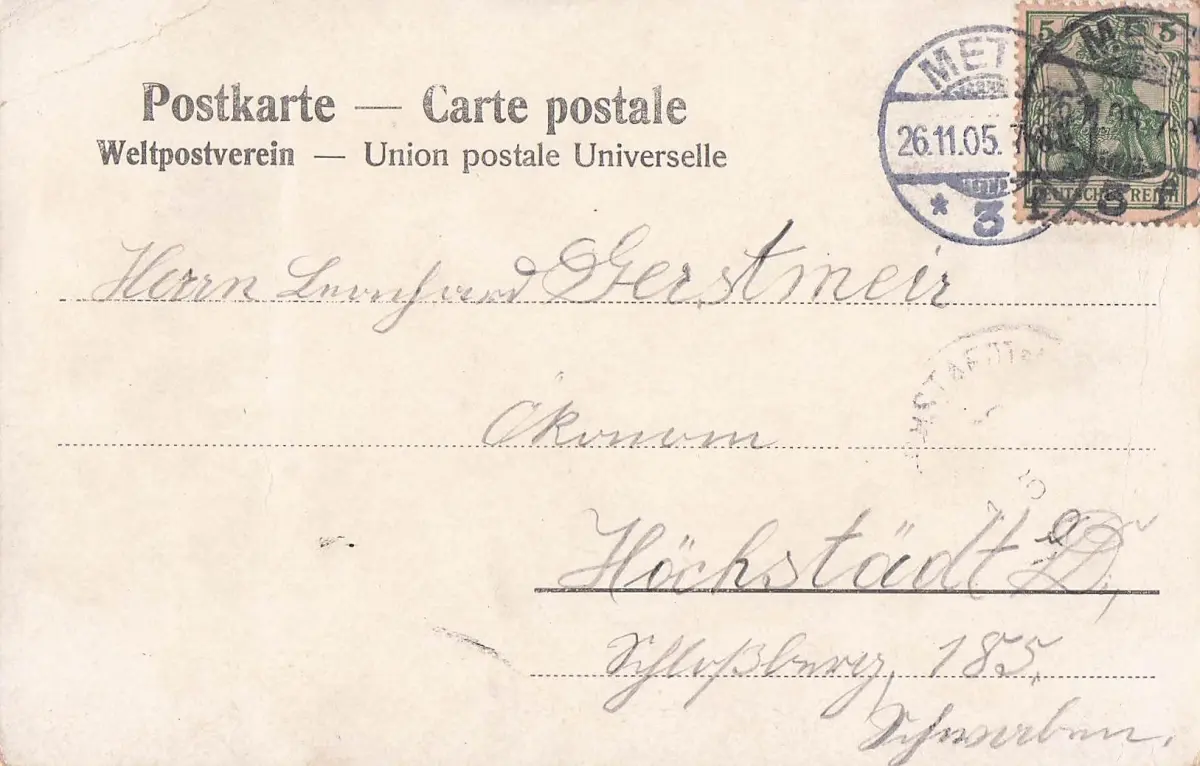 Postkarte — Carte postale
Weltpostverein — Union postale Universelle
METZ
26.11.05. 7-8N.
* 3 f
5 5
DEUTSCHES REICH
Herrn Leonhard Gerstmeir
Ökonom
Höchstädt a D,
Schloßberg, 185,
Schwaben.